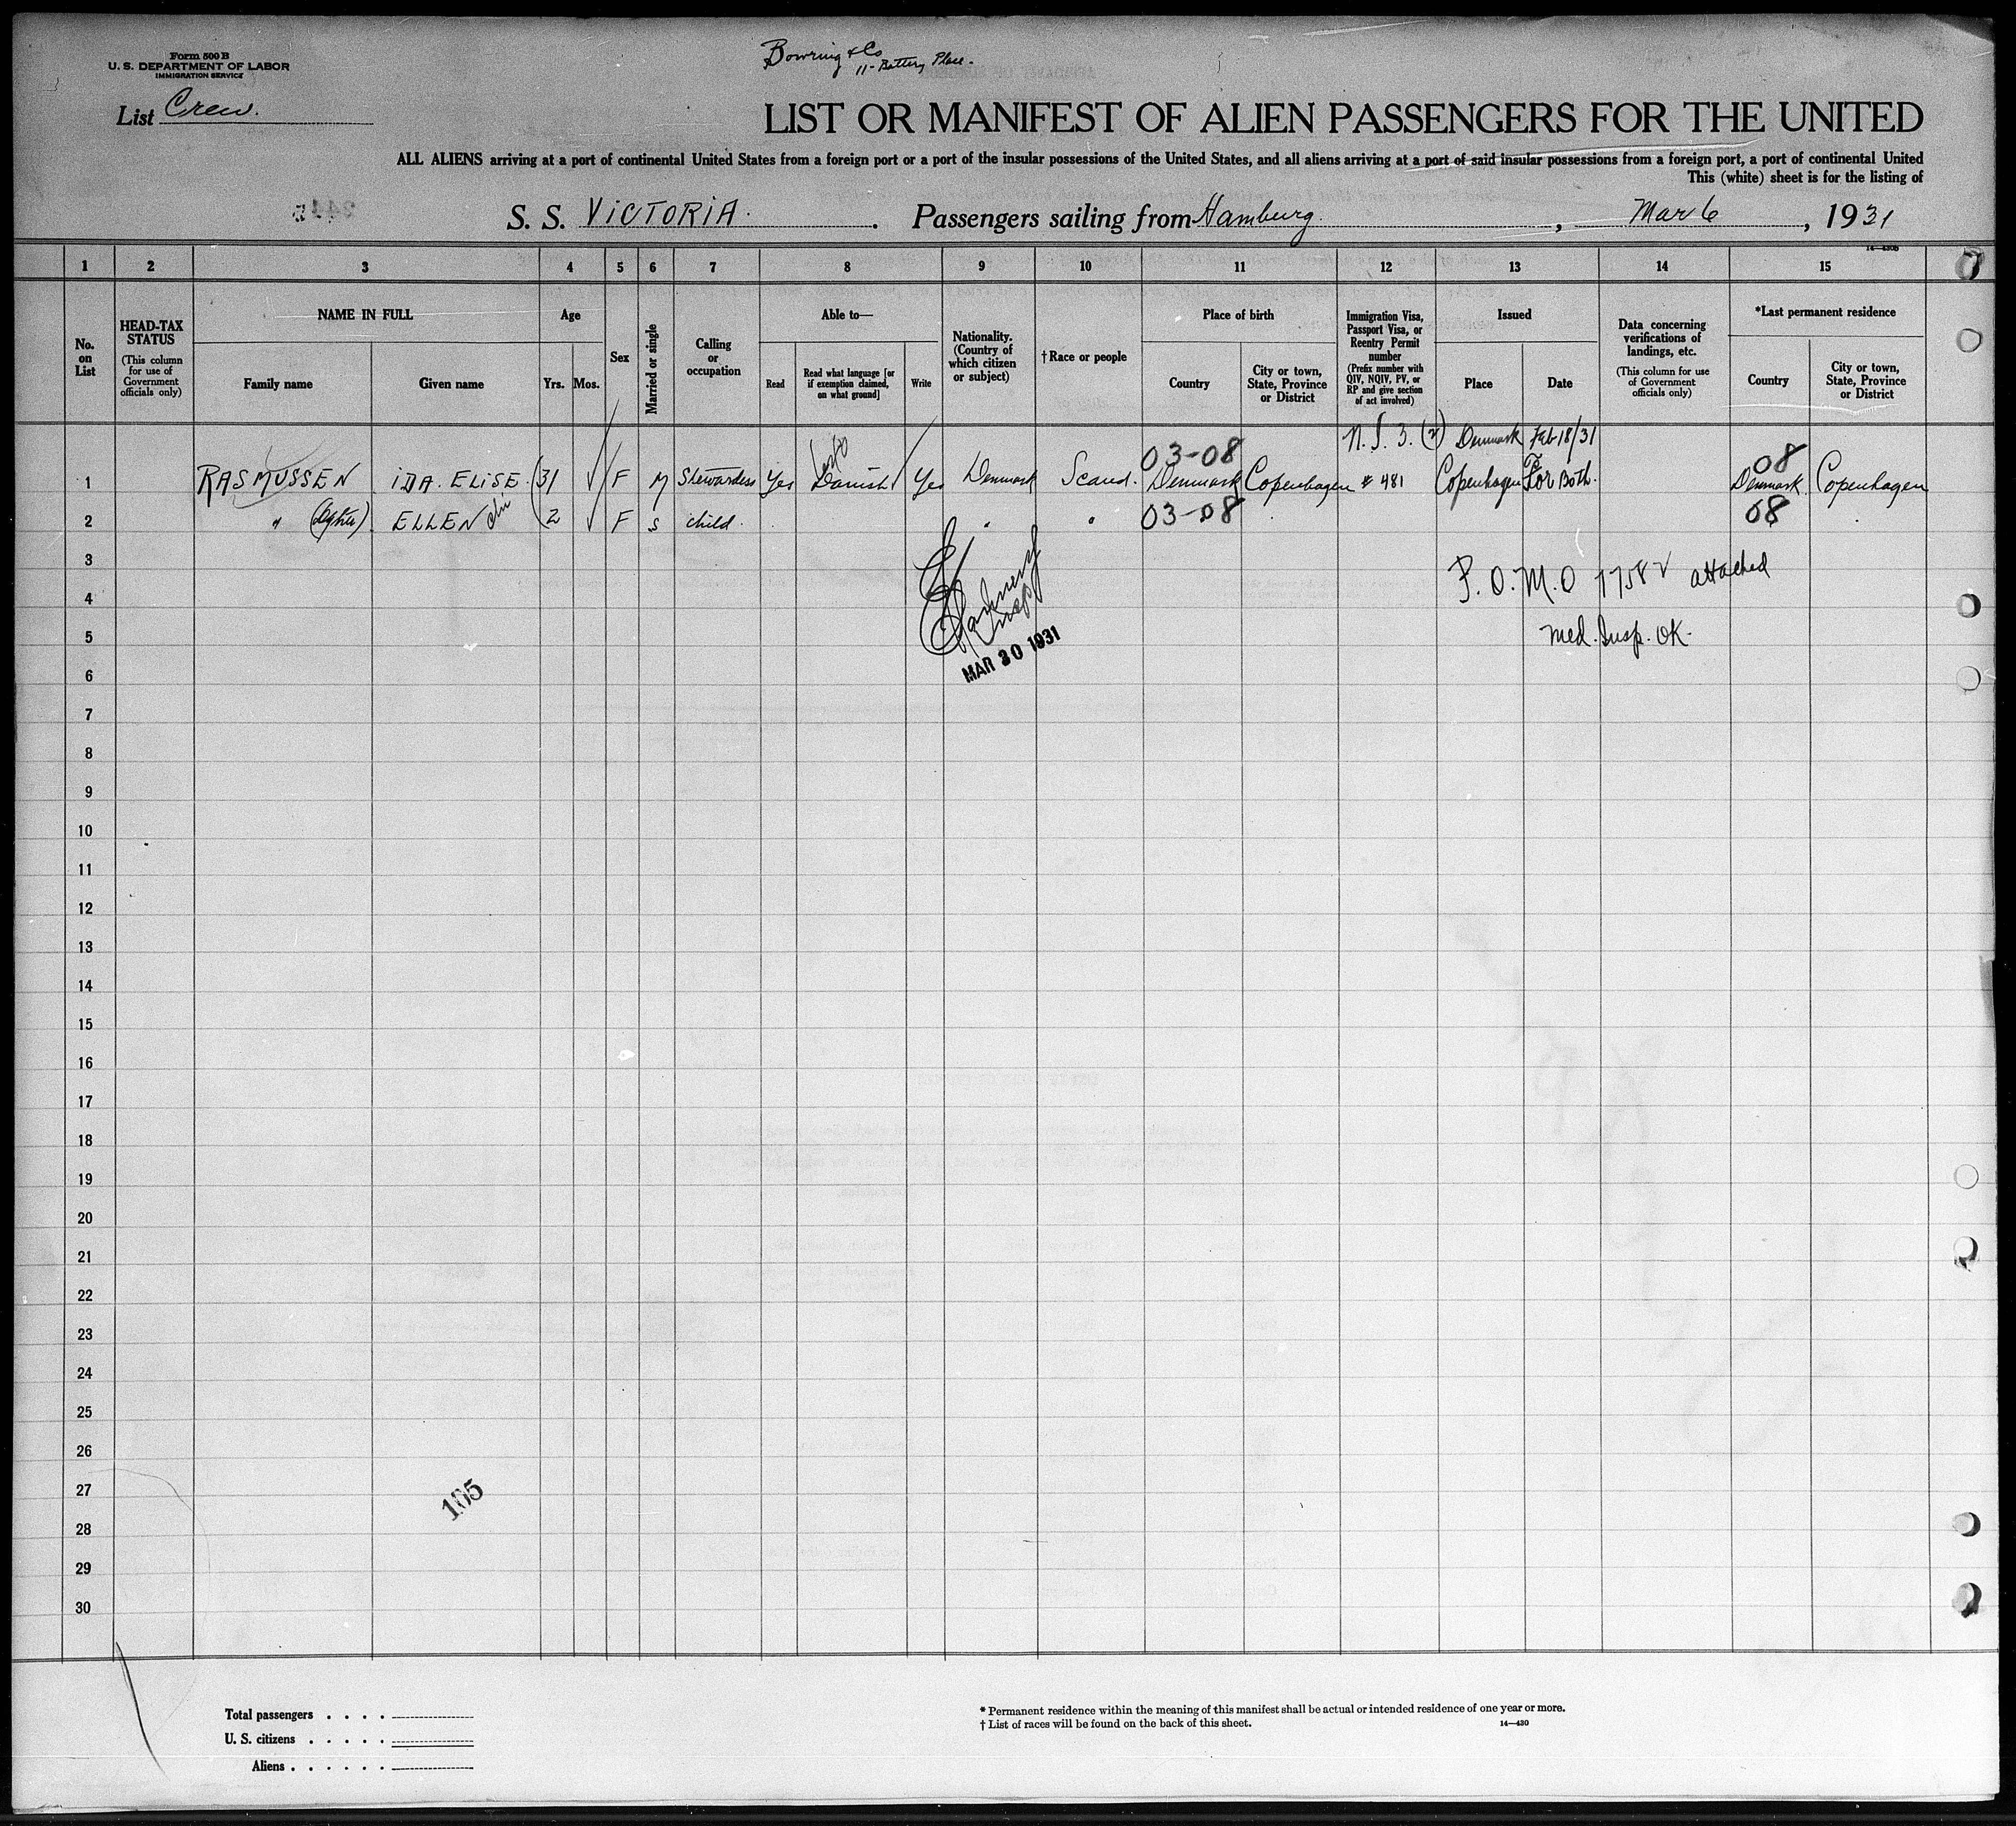 Form 500 B
U. S. DEPARTMENT OF LABOR
IMMIGRATION SERVICE
Bowring & Co
11 - Battery Place.
List Crew.
LIST OR MANIFEST OF ALIEN PASSENGERS FOR THE UNITED
ALL ALIENS arriving at a port of continental United States from a foreign port or a port of the insular possessions of the United States, and all aliens arriving at a port of said insular possessions from a foreign port, a port of continental United
This (white) sheet is for the listing of
S. S. VICTORIA. Passengers sailing from Hamburg. , Mar 6 , 1931
1 2 3 4 5 6 7 8 9 10 11 12 13 14 15
No. on List
HEAD-TAX STATUS (This column for use of Government officials only)
NAME IN FULL
Family name Given name
Age
Yrs. Mos.
Sex
Married or single
Calling or occupation
Able to—
Read Read what language [or if exemption claimed, on what ground] Write
Nationality. (Country of which citizen or subject)
† Race or people
Place of birth
Country City or town, State, Province or District
Immigration Visa, Passport Visa, or Reentry Permit number (Prefix number with QIV, NQIV, PV, or RP and give section of act involved)
Issued
Place Date
Data concerning verifications of landings, etc. (This column for use of Government officials only)
*Last permanent residence
Country City or town, State, Province or District
03-08 Denmark Feb 18/31 08
1 RASMUSSEN IDA. ELISE. 31 F M Stewardess Yes Danish Yes Denmark Scand. Denmark Copenhagen # 481 Copenhagen For Both. Denmark. Copenhagen
2 " ELLEN 2 F s child. " " 03-08 08
3
P. O. M. O attached
4
5
med. Insp. OK.
MAR 30 1931
6
7
8
9
10
11
12
13
14
15
16
17
18
19
20
21
22
23
24
25
26
27
105
28
29
30
Total passengers . . . .
U. S. citizens . . . . .
Aliens . . . . . .
* Permanent residence within the meaning of this manifest shall be actual or intended residence of one year or more.
† List of races will be found on the back of this sheet. 14—430